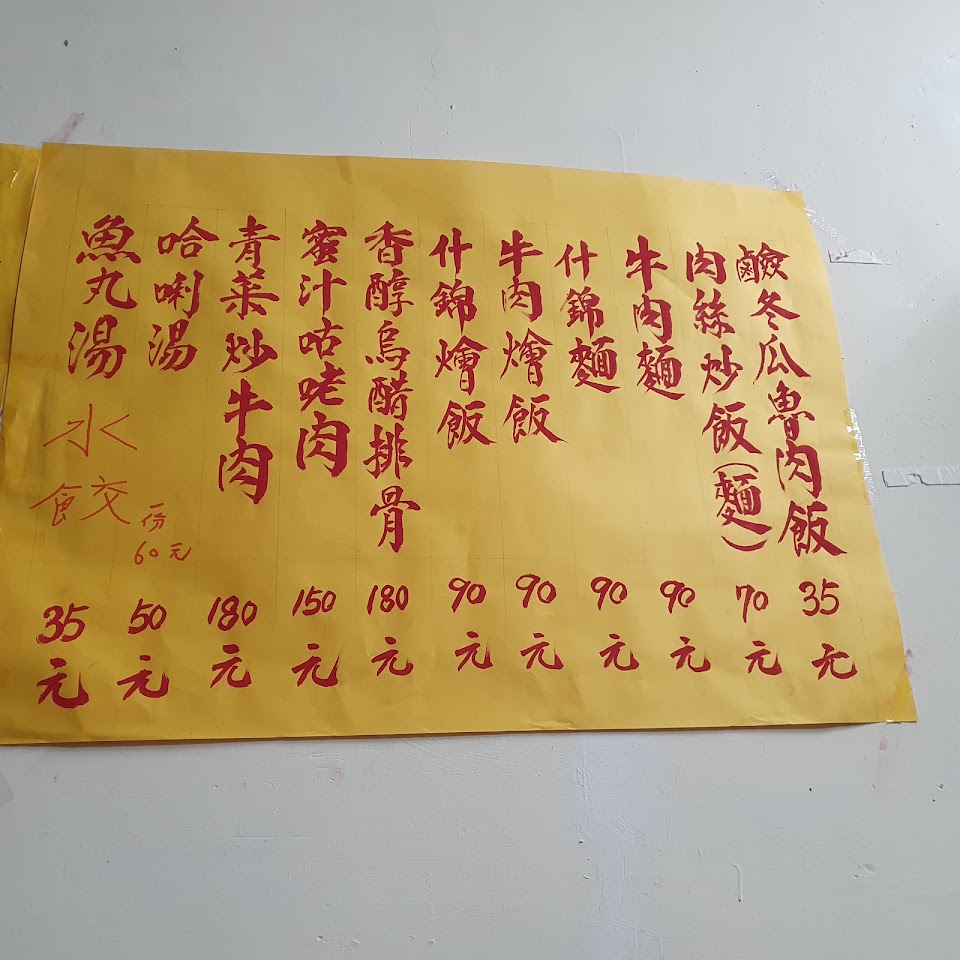 鹼冬瓜魯肉飯 35元
肉絲炒飯(麵) 70元
牛肉麵 90元
什錦麵 90元
牛肉燴飯 90元
什錦燴飯 90元
香醇烏醋排骨 180元
蜜汁咕咾肉 150元
青菜炒牛肉 180元
哈唎湯 50元
魚丸湯 35元
水餃 一份60元